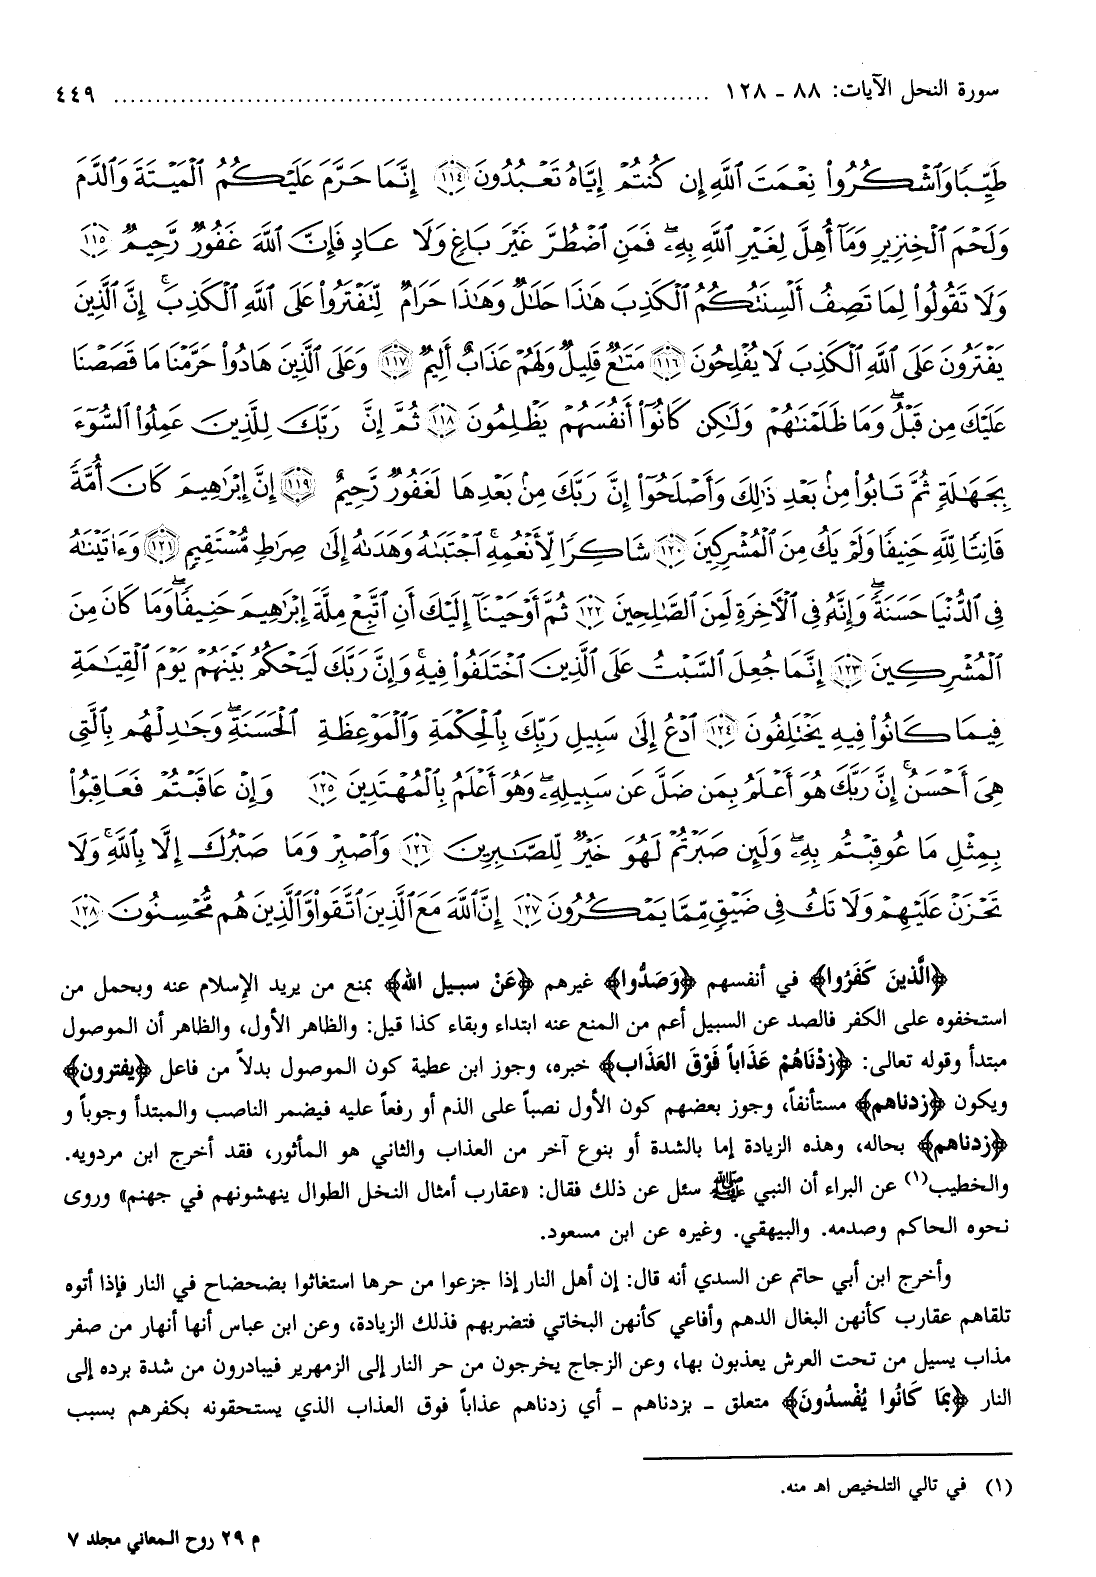 سورة النحل الآيات: ٨٨ - ١٢٨ ........................................ ٤٤٩
طَيِّبًا وَٱشْكُرُوا۟ نِعْمَتَ ٱللَّهِ إِن كُنتُمْ إِيَّاهُ تَعْبُدُونَ ١١٤ إِنَّمَا حَرَّمَ عَلَيْكُمُ ٱلْمَيْتَةَ وَٱلدَّمَ
وَلَحْمَ ٱلْخِنزِيرِ وَمَآ أُهِلَّ لِغَيْرِ ٱللَّهِ بِهِۦۖ فَمَنِ ٱضْطُرَّ غَيْرَ بَاغٍ وَلَا عَادٍ فَإِنَّ ٱللَّهَ غَفُورٌ رَّحِيمٌ ١١٥
وَلَا تَقُولُوا۟ لِمَا تَصِفُ أَلْسِنَتُكُمُ ٱلْكَذِبَ هَٰذَا حَلَٰلٌ وَهَٰذَا حَرَامٌ لِّتَفْتَرُوا۟ عَلَى ٱللَّهِ ٱلْكَذِبَۚ إِنَّ ٱلَّذِينَ
يَفْتَرُونَ عَلَى ٱللَّهِ ٱلْكَذِبَ لَا يُفْلِحُونَ ١١٦ مَتَٰعٌ قَلِيلٌ وَلَهُمْ عَذَابٌ أَلِيمٌ ١١٧ وَعَلَى ٱلَّذِينَ هَادُوا۟ حَرَّمْنَا مَا قَصَصْنَا
عَلَيْكَ مِن قَبْلُۖ وَمَا ظَلَمْنَٰهُمْ وَلَٰكِن كَانُوٓا۟ أَنفُسَهُمْ يَظْلِمُونَ ١١٨ ثُمَّ إِنَّ رَبَّكَ لِلَّذِينَ عَمِلُوا۟ ٱلسُّوٓءَ
بِجَهَٰلَةٍ ثُمَّ تَابُوا۟ مِنۢ بَعْدِ ذَٰلِكَ وَأَصْلَحُوٓا۟ إِنَّ رَبَّكَ مِنۢ بَعْدِهَا لَغَفُورٌ رَّحِيمٌ ١١٩ إِنَّ إِبْرَٰهِيمَ كَانَ أُمَّةً
قَانِتًا لِّلَّهِ حَنِيفًا وَلَمْ يَكُ مِنَ ٱلْمُشْرِكِينَ ١٢٠ شَاكِرًا لِّأَنْعُمِهِۚ ٱجْتَبَىٰهُ وَهَدَىٰهُ إِلَىٰ صِرَٰطٍ مُّسْتَقِيمٍ ١٢١ وَءَاتَيْنَٰهُ
فِى ٱلدُّنْيَا حَسَنَةًۖ وَإِنَّهُۥ فِى ٱلْءَاخِرَةِ لَمِنَ ٱلصَّٰلِحِينَ ١٢٢ ثُمَّ أَوْحَيْنَآ إِلَيْكَ أَنِ ٱتَّبِعْ مِلَّةَ إِبْرَٰهِيمَ حَنِيفًاۖ وَمَا كَانَ مِنَ
ٱلْمُشْرِكِينَ ١٢٣ إِنَّمَا جُعِلَ ٱلسَّبْتُ عَلَى ٱلَّذِينَ ٱخْتَلَفُوا۟ فِيهِۚ وَإِنَّ رَبَّكَ لَيَحْكُمُ بَيْنَهُمْ يَوْمَ ٱلْقِيَٰمَةِ
فِيمَا كَانُوا۟ فِيهِ يَخْتَلِفُونَ ١٢٤ ٱدْعُ إِلَىٰ سَبِيلِ رَبِّكَ بِٱلْحِكْمَةِ وَٱلْمَوْعِظَةِ ٱلْحَسَنَةِۖ وَجَٰدِلْهُم بِٱلَّتِى
هِىَ أَحْسَنُۚ إِنَّ رَبَّكَ هُوَ أَعْلَمُ بِمَن ضَلَّ عَن سَبِيلِهِۦۖ وَهُوَ أَعْلَمُ بِٱلْمُهْتَدِينَ ١٢٥ وَإِنْ عَاقَبْتُمْ فَعَاقِبُوا۟
بِمِثْلِ مَا عُوقِبْتُم بِهِۦۖ وَلَئِن صَبَرْتُمْ لَهُوَ خَيْرٌ لِّلصَّٰبِرِينَ ١٢٦ وَٱصْبِرْ وَمَا صَبْرُكَ إِلَّا بِٱللَّهِۚ وَلَا
تَحْزَنْ عَلَيْهِمْ وَلَا تَكُ فِى ضَيْقٍ مِّمَّا يَمْكُرُونَ ١٢٧ إِنَّ ٱللَّهَ مَعَ ٱلَّذِينَ ٱتَّقَوا۟ وَّٱلَّذِينَ هُم مُّحْسِنُونَ ١٢٨
﴿الَّذينَ كَفَرُوا﴾ في أنفسهم ﴿وَصَدُّوا﴾ غيرهم ﴿عَنْ سبيل الله﴾ بمنع من يريد الإسلام عنه وبحمل من
استخفوه على الكفر فالصد عن السبيل أعم من المنع عنه ابتداء وبقاء كذا قيل: والظاهر الأول، والظاهر أن الموصول
مبتدأ وقوله تعالى: ﴿زدْنَاهُمْ عَذَاباً فَوْقَ العَذَاب﴾ خبره، وجوز ابن عطية كون الموصول بدلاً من فاعل ﴿يفترون﴾
ويكون ﴿زدناهم﴾ مستأنفاً، وجوز بعضهم كون الأول نصباً على الذم أو رفعاً عليه فيضمر الناصب والمبتدأ وجوباً و
﴿زدناهم﴾ بحاله، وهذه الزيادة إما بالشدة أو بنوع آخر من العذاب والثاني هو المأثور، فقد أخرج ابن مردويه.
والخطيب(١) عن البراء أن النبي ﷺ سئل عن ذلك فقال: «عقارب أمثال النخل الطوال ينهشونهم في جهنم» وروى
نحوه الحاكم وصدمه. والبيهقي. وغيره عن ابن مسعود.
وأخرج ابن أبي حاتم عن السدي أنه قال: إن أهل النار إذا جزعوا من حرها استغاثوا بضحضاح في النار فإذا أتوه
تلقاهم عقارب كأنهن البغال الدهم وأفاعي كأنهن البخاتي فتضربهم فذلك الزيادة، وعن ابن عباس أنها أنهار من صفر
مذاب يسيل من تحت العرش يعذبون بها، وعن الزجاج يخرجون من حر النار إلى الزمهرير فيبادرون من شدة برده إلى
النار ﴿بِمَا كَانُوا يُفْسدُونَ﴾ متعلق - بزدناهم - أي زدناهم عذاباً فوق العذاب الذي يستحقونه بكفرهم بسبب
(١) في تالي التلخيص اهـ منه.
م ٢٩ روح المعاني مجلد ٧